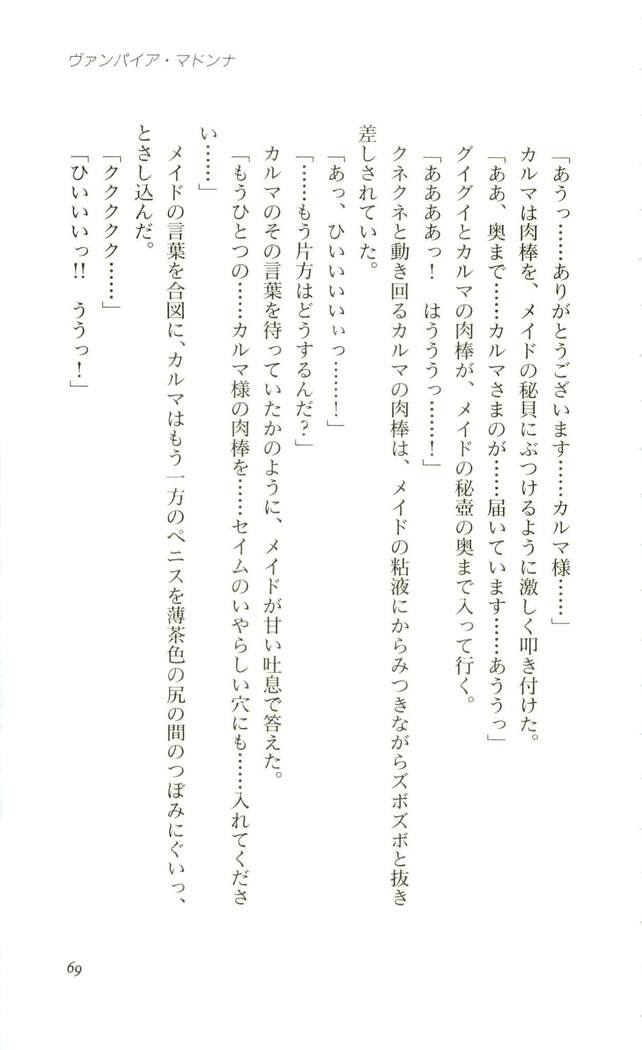 ヴァンパイア・マドンナ
「あうっ……ありがとうございます……カルマ様……」
カルマは肉棒を、メイドの秘貝にぶつけるように激しく叩き付けた。
「ああ、奥まで……カルマさまのが……届いています……あううっ」
グイグイとカルマの肉棒が、メイドの秘壺の奥まで入って行く。
「ああああっ！　はうううっ……！」
クネクネと動き回るカルマの肉棒は、メイドの粘液にからみつきながらズボズボと抜き
差しされていた。
「あっ、ひいいいいぃっ……！」
「……もう片方はどうするんだ？」
カルマのその言葉を待っていたかのように、メイドが甘い吐息で答えた。
「もうひとつの……カルマ様の肉棒を……セイムのいやらしい穴にも……入れてくださ
い……」
メイドの言葉を合図に、カルマはもう一方のペニスを薄茶色の尻の間のつぼみにぐいっ、
とさし込んだ。
「ククククク……」
「ひいいいっ!!　ううっ！」
69